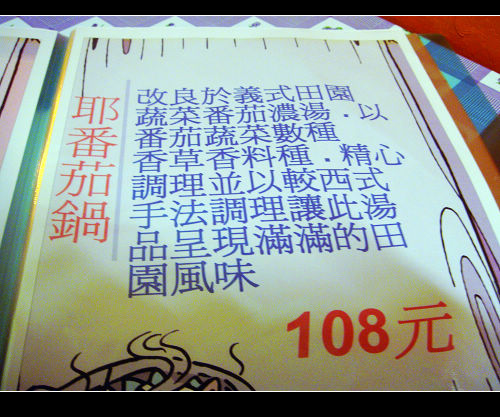 耶番茄鍋
改良於義式田園
蔬菜番茄濃湯．以
番茄蔬菜數種
香草香料種．精心
調理並以較西式
手法調理讓此湯
品呈現滿滿的田
園風味
108元